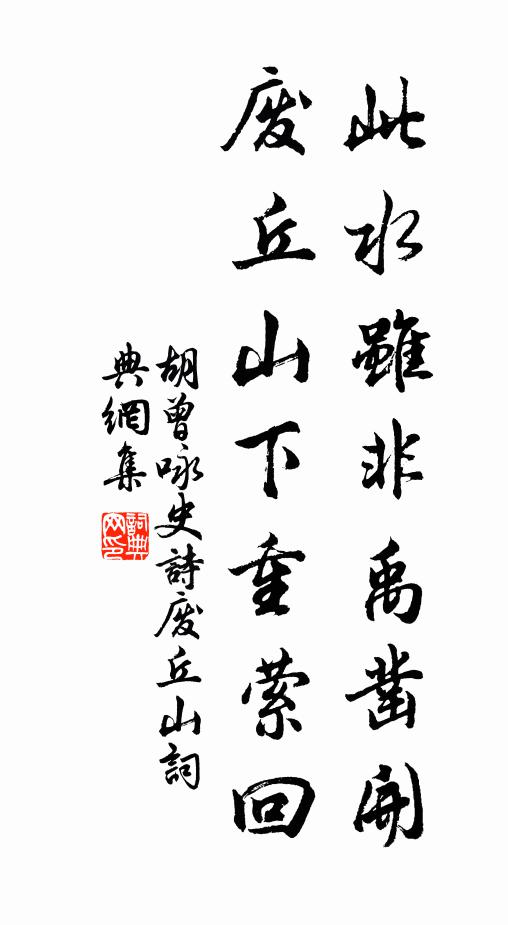 此水雖非禹鑿開
廢丘山下重縈回
胡曾咏史詩廢丘山詞
典網集
詞典
网印